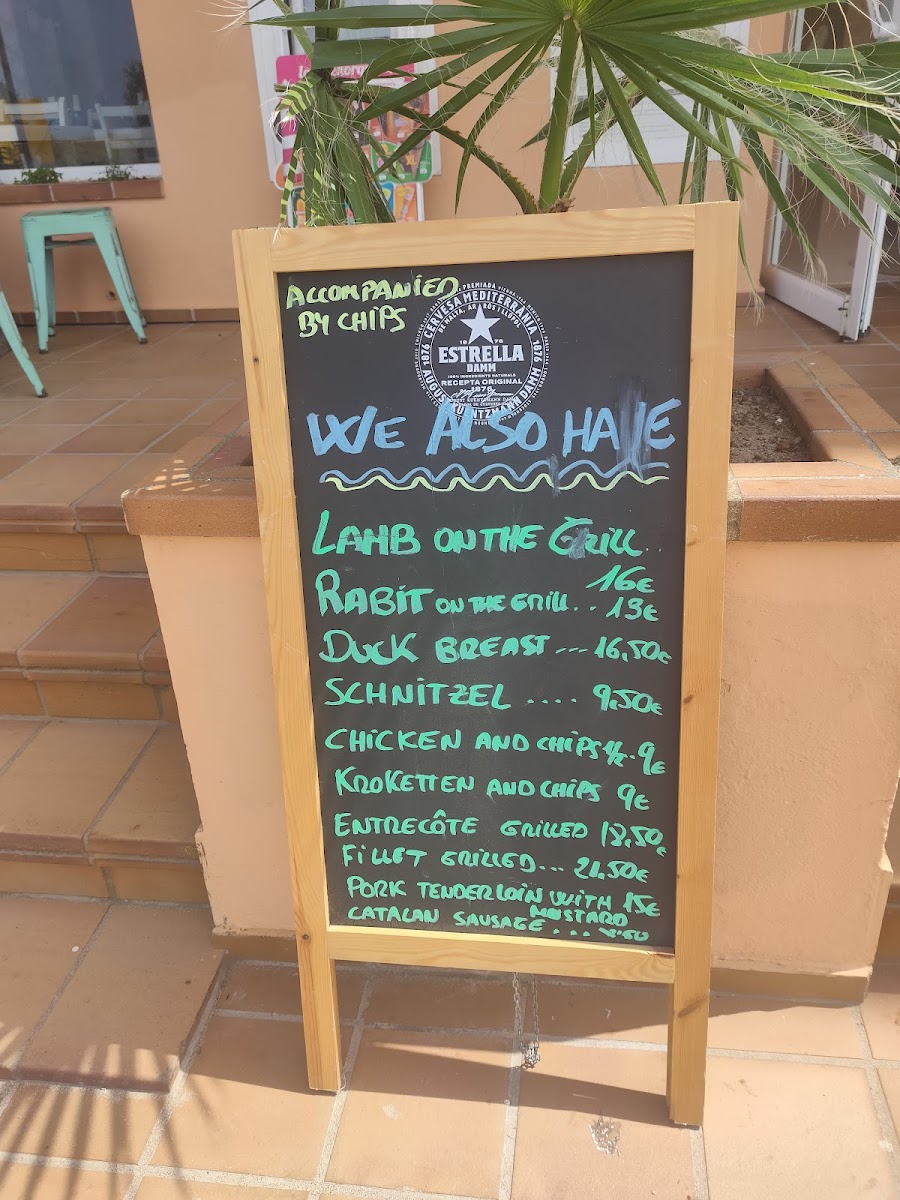 ACCOMPANIED
BY CHIPS
PREMIADA
CERVESA MEDITERRÀNIA
DE MALTA, ARRÒS I LLÚPOL
1876
1876
1876
ESTRELLA
DAMM
100% INGREDIENTS NATURALS
RECEPTA ORIGINAL
1876
AUGUST KUENTZMANN DAMM
WE ALSO HAVE
LAMB ON THE GRILL..
16€
RABIT ON THE GRILL.. 13€
DUCK BREAST ... 16,50€
SCHNITZEL .... 9,50€
CHICKEN AND CHIPS 1/2. 9€
KROKETTEN AND CHIPS 9€
ENTRECÔTE GRILLED 18,50€
FILLET GRILLED... 21,50€
PORK TENDERLOIN WITH 15€
MUSTARD
CATALAN SAUSAGE ...